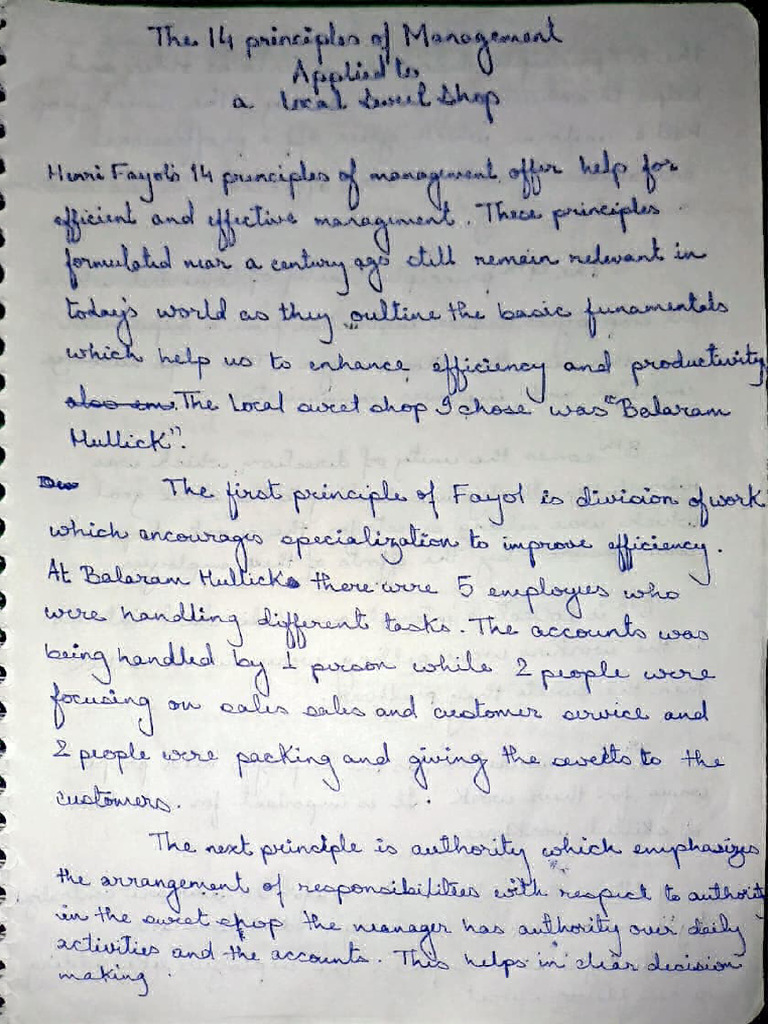 The 14 principles of Management
Applied to
a Local Sweet Shop
Henri Fayol's 14 principles of management offer help for
efficient and effective management. These principles
formulated near a century ago still remain relevant in
today's world as they oultine the basic funamentals
which help us to enhance efficiency and productivity
The Local sweet shop I chose was "Balaram
Mullick".
The first principle of Fayol is division of work
which encourages specialization to improve efficiency.
At Balaram Mullick there were 5 employees who
were handling different tasks. The accounts was
being handled by 1 person while 2 people were
focusing on sales sales and customer service and
2 people were packing and giving the sweets to the
customers.
The next principle is authority which emphasizes
the arrangement of responsibilities with respect to authority
in the sweet shop the manager has authority over daily
activities and the accounts. This helps in clear decision
making.